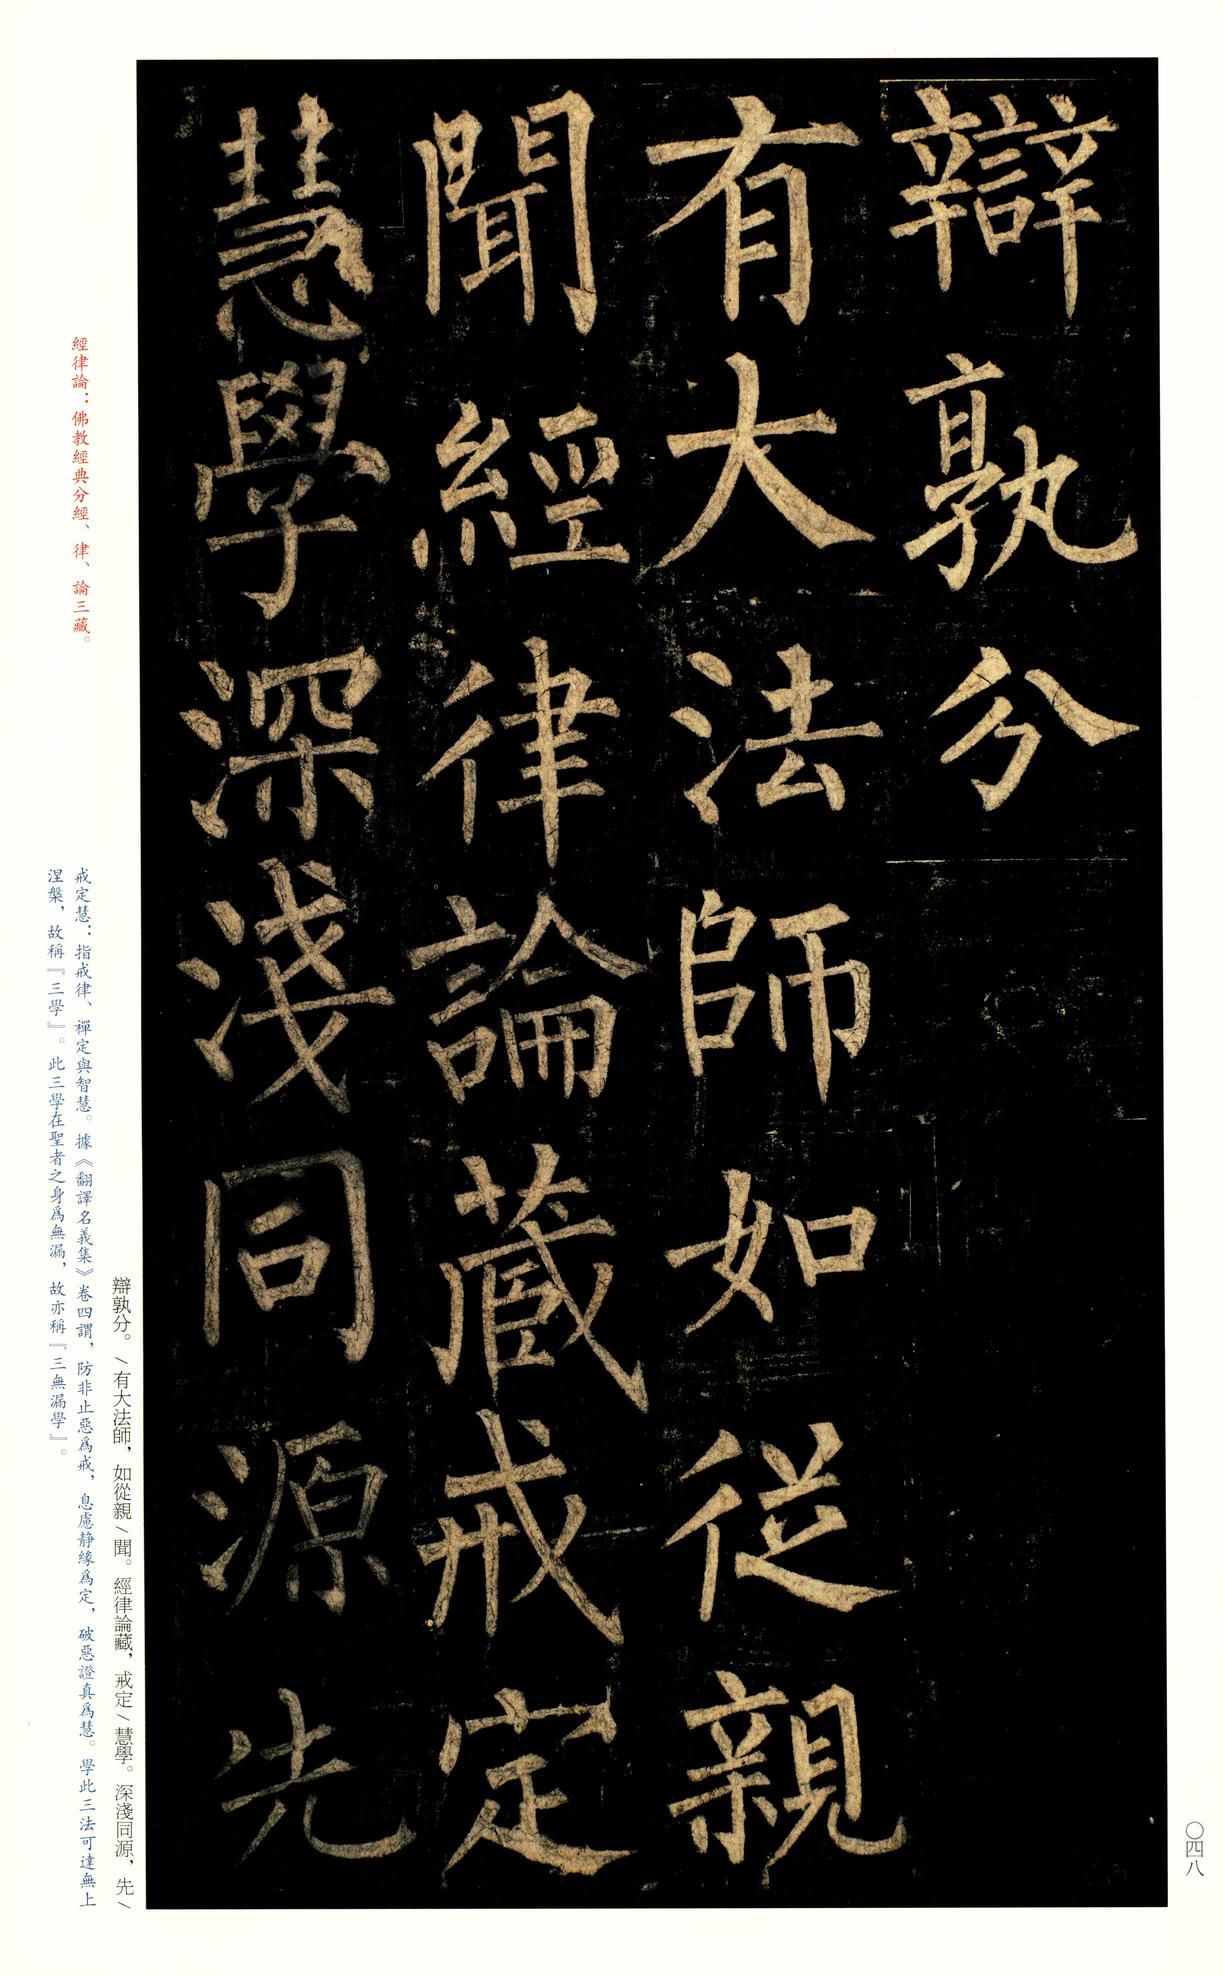 辯孰分
有大法師如從親
聞經律論藏戒定
慧學深淺同源先
辯孰分。/有大法師，如從親/聞。經律論藏，戒定/慧學。深淺同源，先/
經律論：佛教經典分經、律、論三藏。
戒定慧：指戒律、禪定與智慧。據《翻譯名義集》卷四謂，防非止惡爲戒，息慮静緣爲定，破惡證真爲慧。學此三法可達無上
涅槃，故稱『三學』。此三學在聖者之身爲無漏，故亦稱『三無漏學』。
〇四八